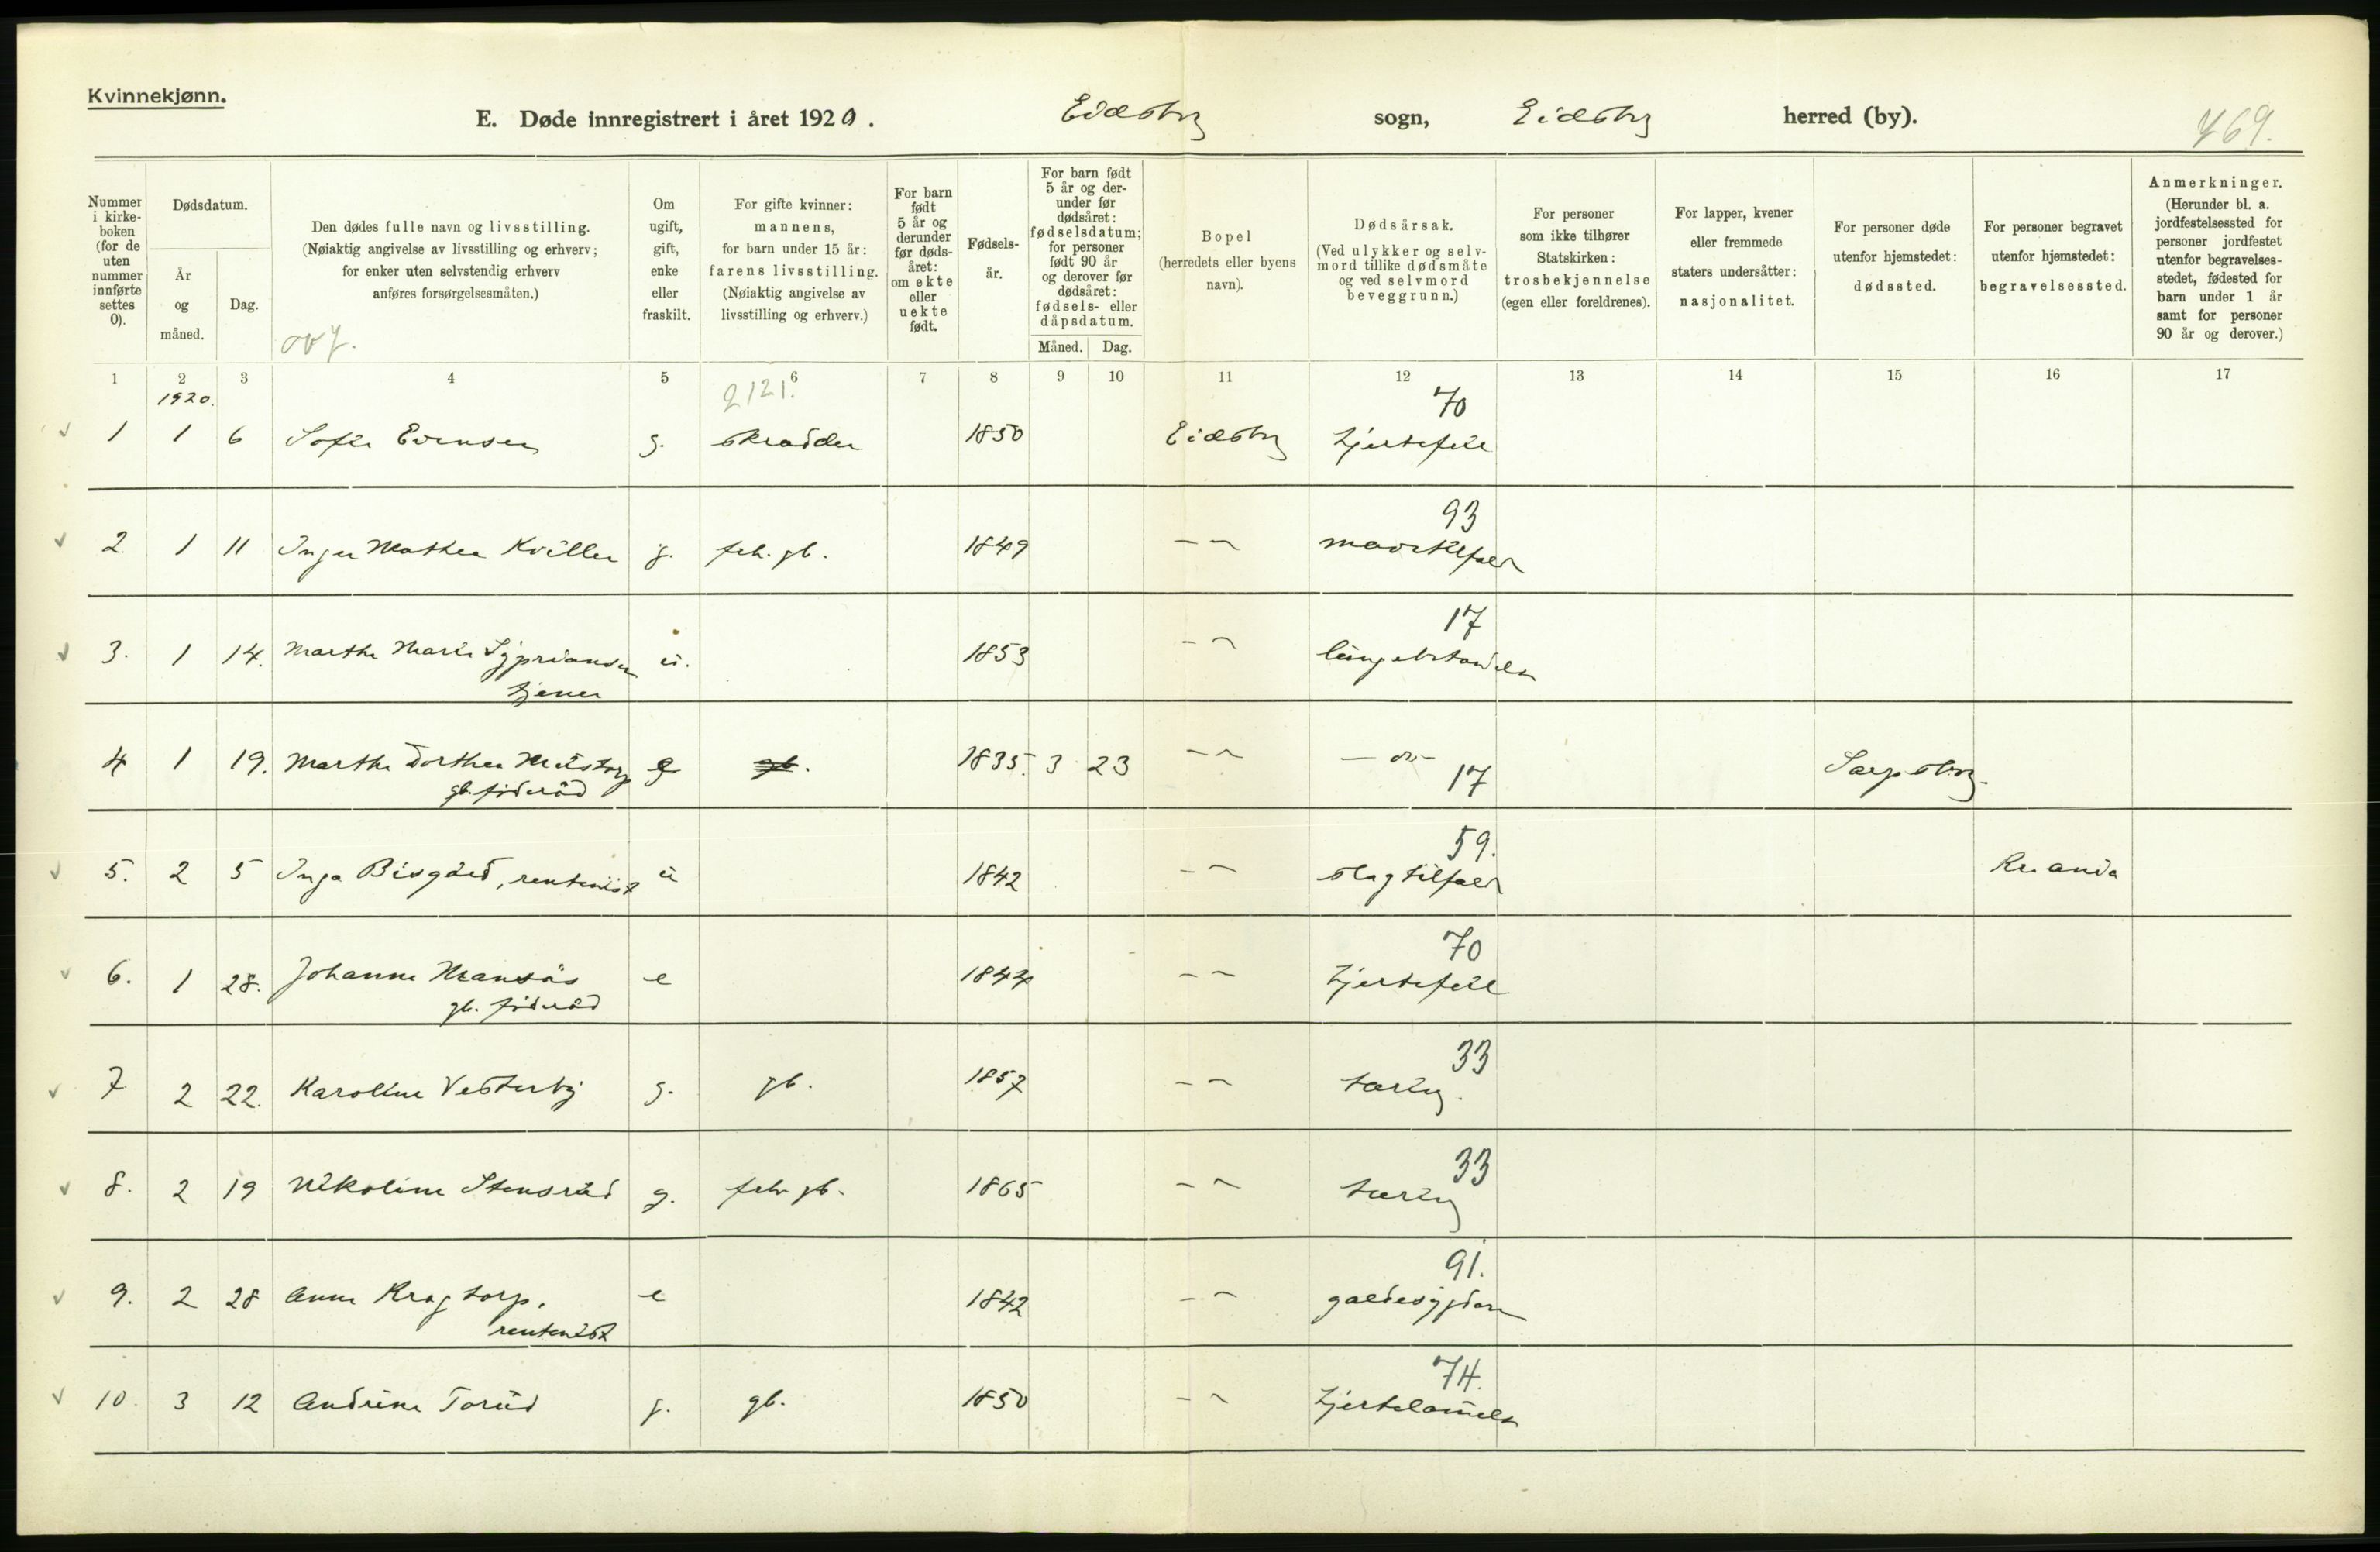 Kvinnekjønn.
E. Døde innregistrert i året 1920. Eidsbg sogn, Eidsbg herred (by). 469.
Nummer i kirke-boken (for de uten nummer innførte settes 0).
Dødsdatum.
År og måned.
Dag.
Den dødes fulle navn og livsstilling.
(Nøiaktig angivelse av livsstilling og erhverv;
for enker uten selvstendig erhverv
anføres forsørgelsesmåten.)
Om ugift, gift, enke eller fraskilt.
For gifte kvinner:
mannens,
for barn under 15 år:
farens livsstilling.
(Nøiaktig angivelse av
livsstilling og erhverv.)
For barn født 5 år og derunder før døds-året: om ekte eller uekte født.
Fødsels-år.
For barn født 5 år og der-under før dødsåret: fødselsdatum; for personer født 90 år og derover før dødsåret: fødsels- eller dåpsdatum.
Måned. Dag.
Bopel
(herredets eller byens
navn).
Dødsårsak.
(Ved ulykker og selv-
mord tillike dødsmåte
og ved selvmord
beveggrunn.)
For personer
som ikke tilhører
Statskirken:
trosbekjennelse
(egen eller foreldrenes).
For lapper, kvener
eller fremmede
staters undersåtter:
nasjonalitet.
For personer døde
utenfor hjemstedet:
dødssted.
For personer begravet
utenfor hjemstedet:
begravelsessted.
Anmerkninger.
(Herunder bl. a.
jordfestelsessted for
personer jordfestet
utenfor begravelses-
stedet, fødested for
barn under 1 år
samt for personer
90 år og derover.)
1 2 3 4 5 6 7 8 9 10 11 12 13 14 15 16 17
1920. 2121. 70
1 1 6 Sofie Evensen g. skrædder 1850 Eidsbg hjertefeil
93
2. 1 11 Inger Mathea Kviller g. frh. gb. 1849 – –
17
3. 1 14. Marthe Marie Sypriansen u. 1853 – – lungebetændelse
tjener
4 1 19. Marthe Dorthea g 1835. 3 23 – – – do – Sarpsbg.
gb. føderåd 17
59.
5. 2 5 Inga Bisgård, rentenist u 1842 – – slagtilfæld
70
6. 1 28. Johanne Mansås e 1844 – – hjertefeil
gb. føderåd
33
7 2 22. Karoline Vesterby g. gb. 1857 – – tæring.
33
8. 2 19 Nikoline Stensrud g. frh gb. 1865 – – tæring
91.
9. 2 28 Anne Kragtorp. e 1842 – – galdesygdom
rentenist
74.
10. 3 12 Andrine Torud g. gb. 1850 – – hjertelammelse